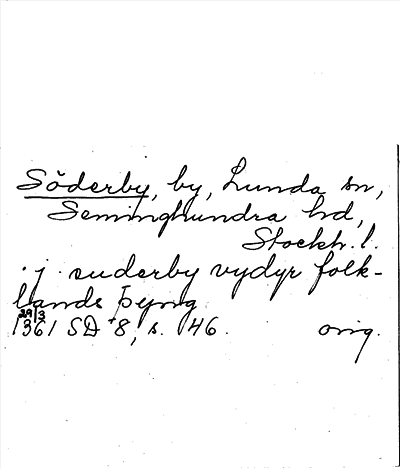 Söderby, by, Lunda sn,
Seminghundra hd,
Stockh. l.
. j . suderby vydyr folk-
lands þyng
29/3
1361 SD 8, s. 146. orig.